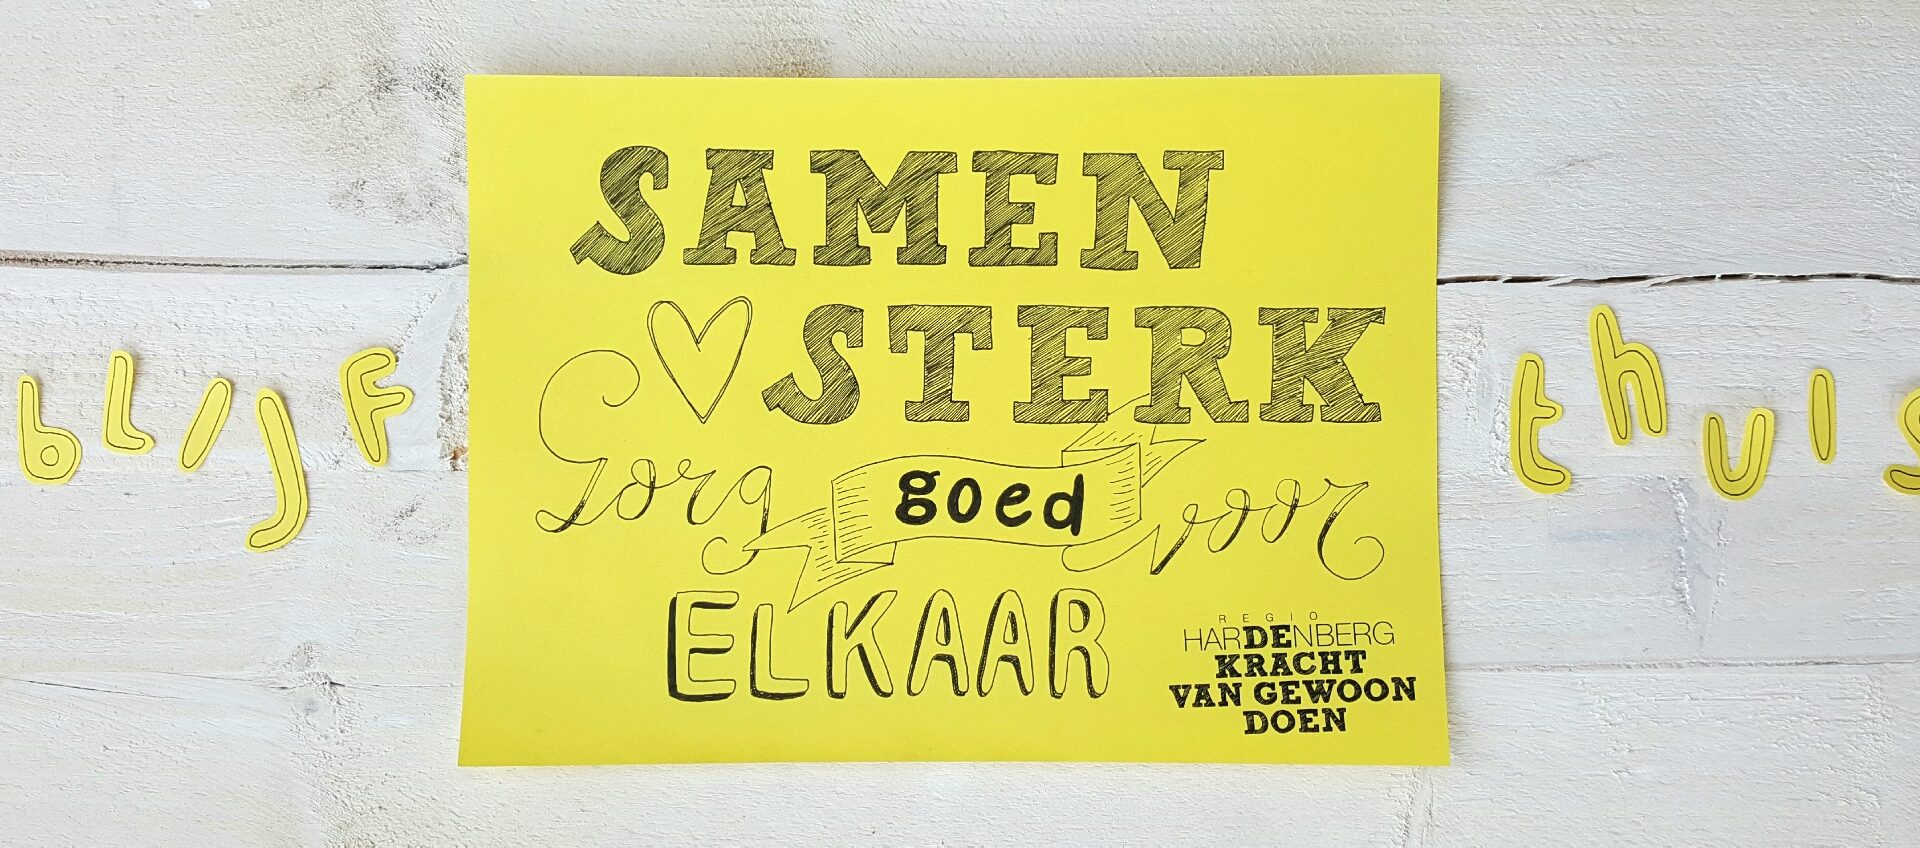 SAMEN
STERK
Zorg goed voor
ELKAAR
REGIO
HARDENBERG
KRACHT
VAN GEWOON
DOEN
bLIJF
thuis